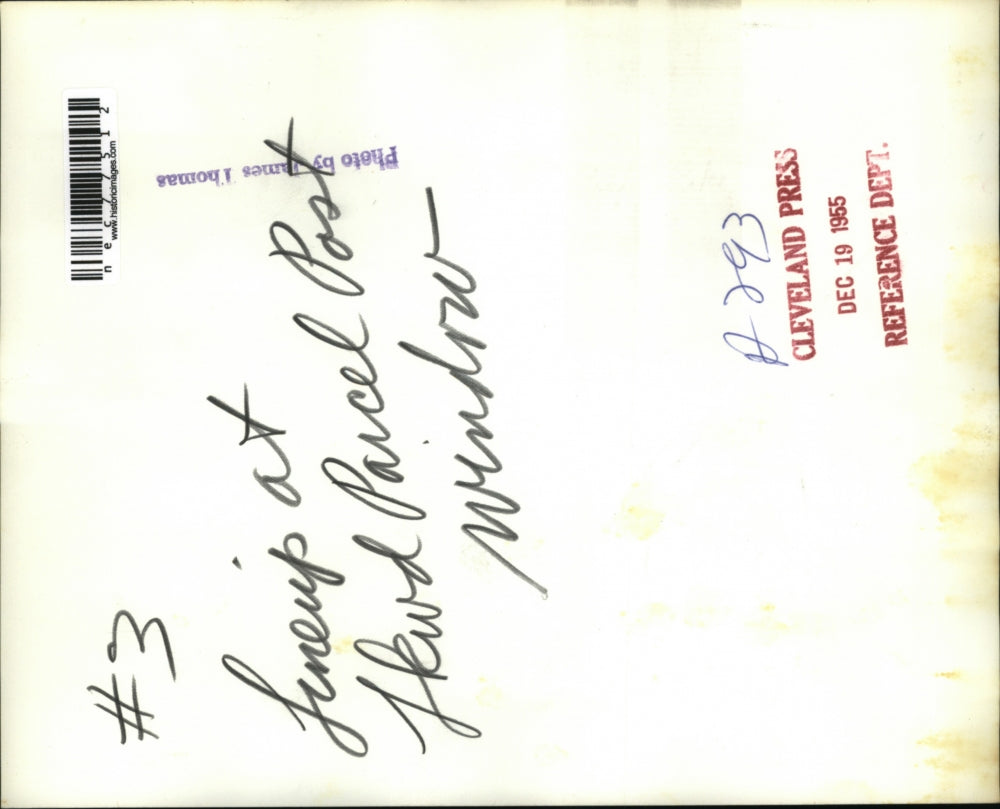 #3
Lineup at
Lkwd Parcel Post
Window
Photo by James Thomas
nec77512
www.historicimages.com
A 293
CLEVELAND PRESS
DEC 19 1955
REFERENCE DEPT.